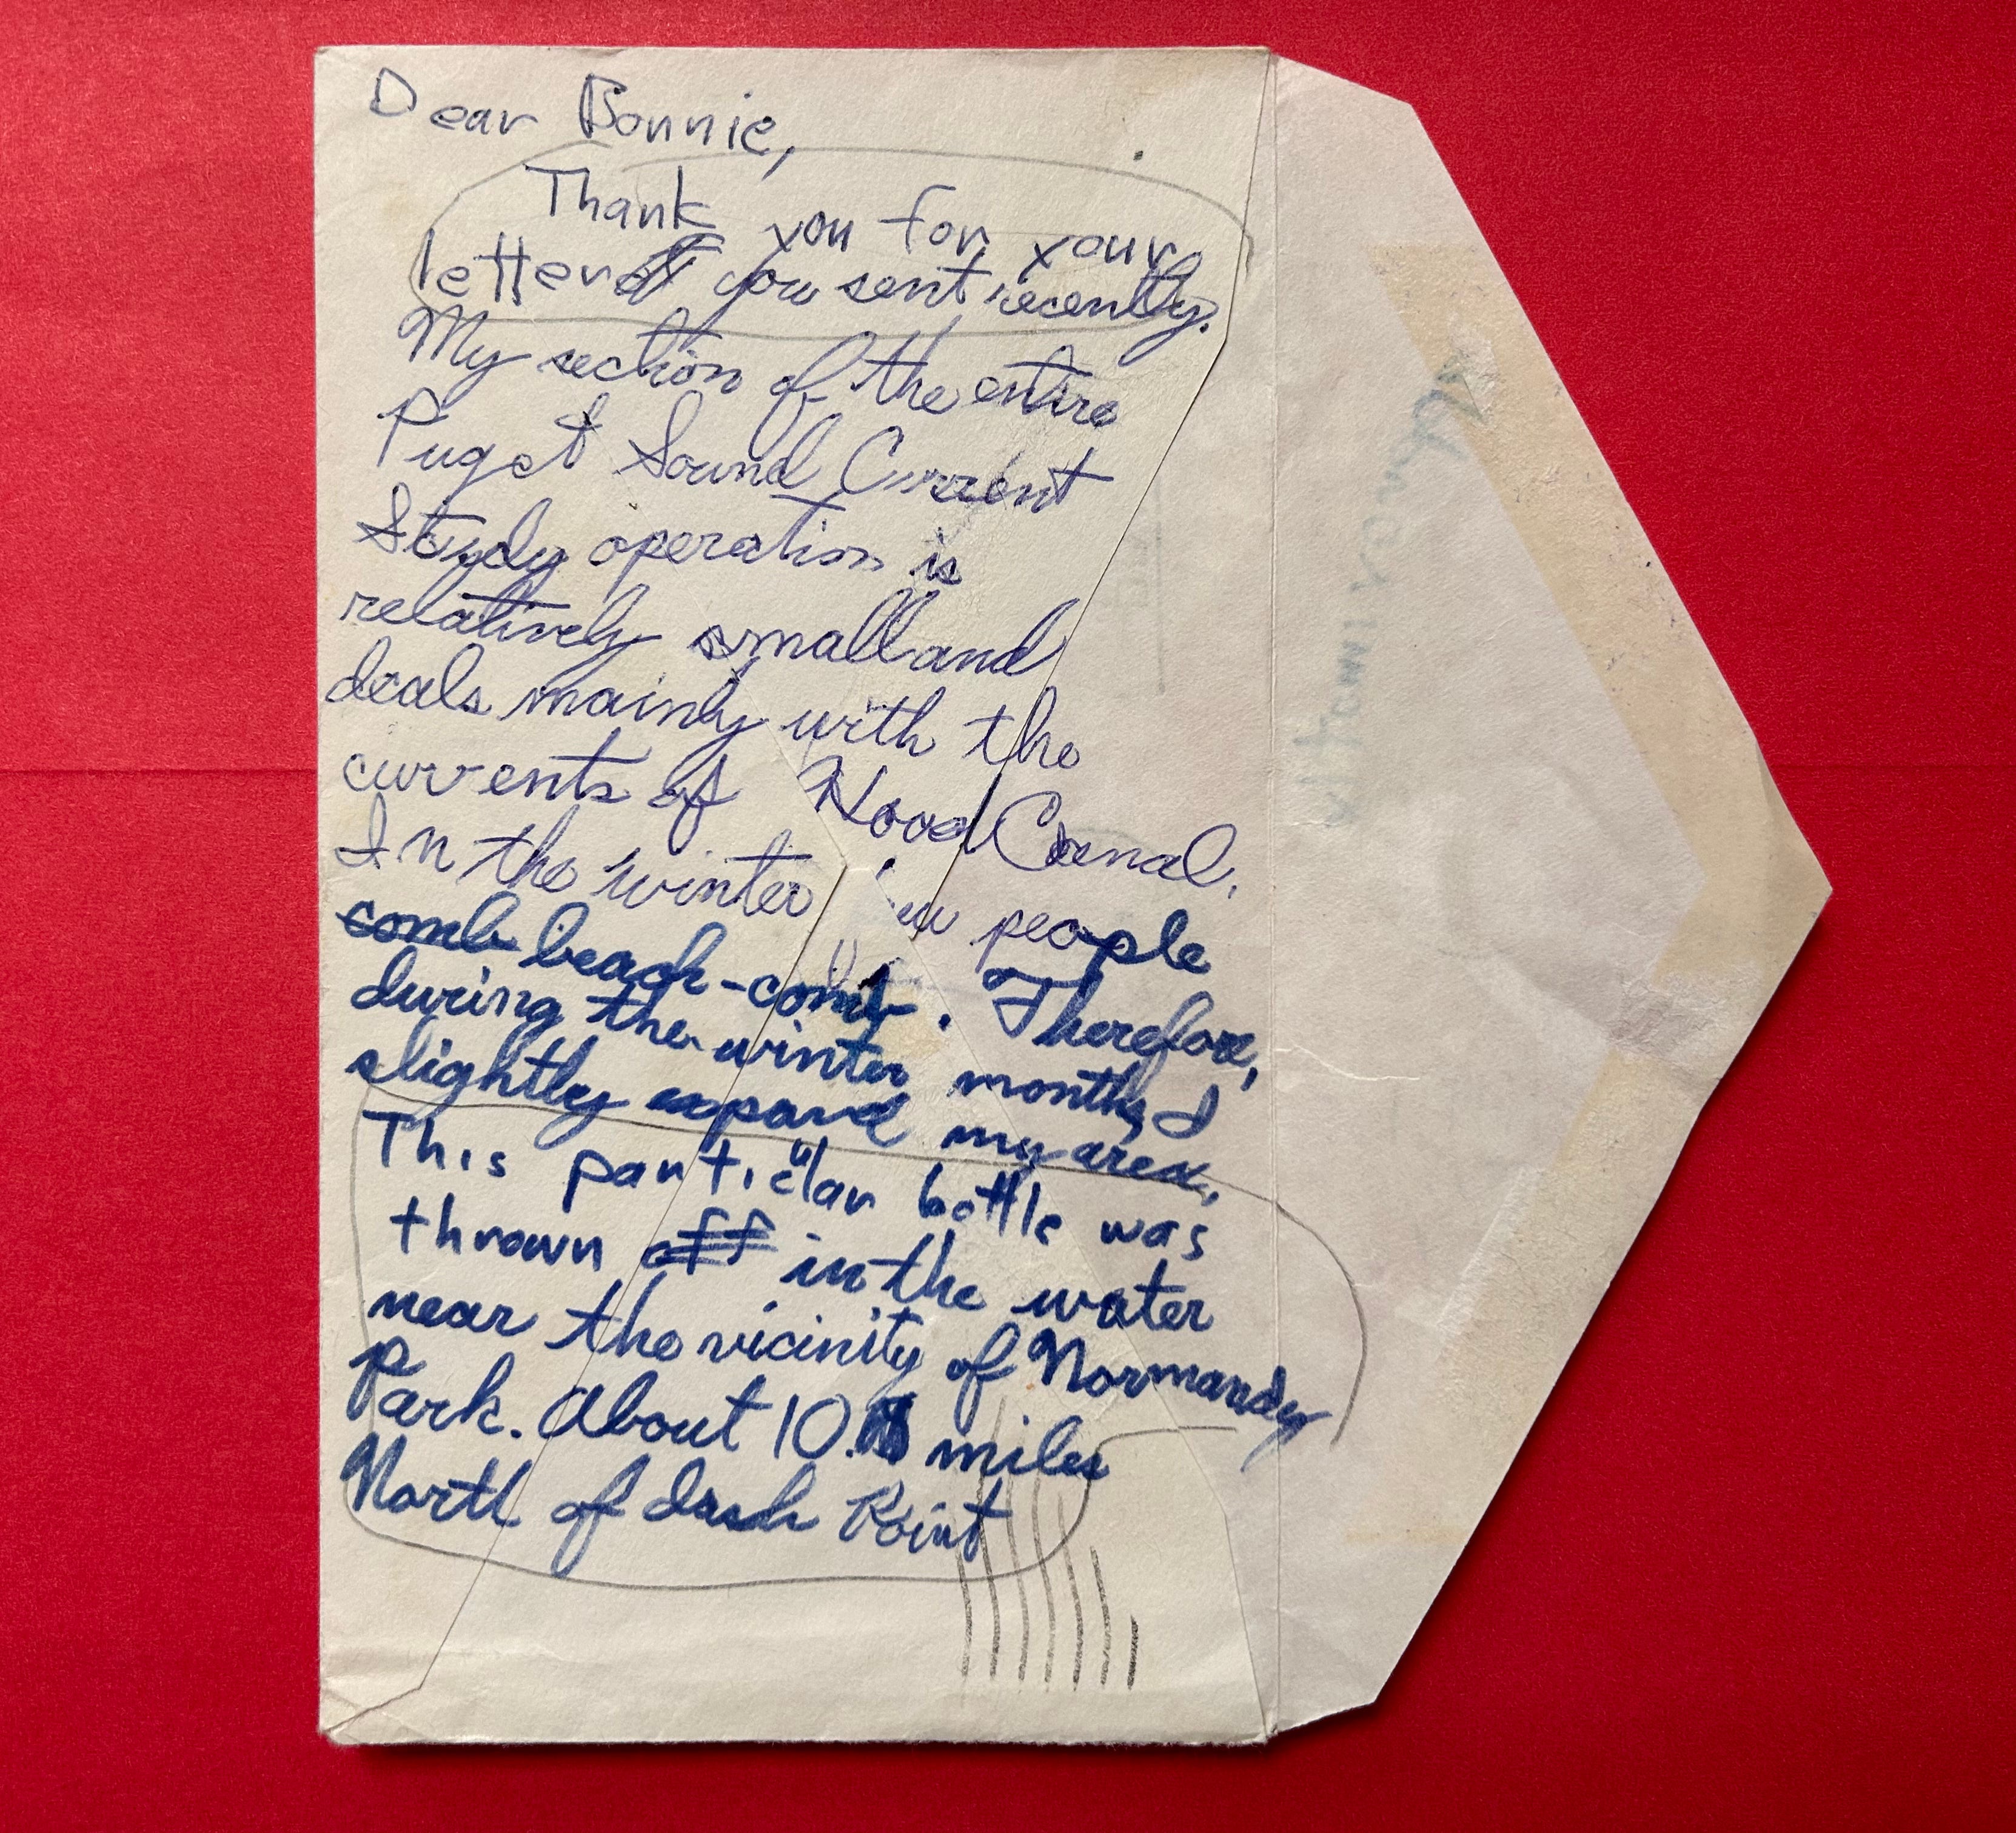 Dear Bonnie,
Thank you for your
letter you sent recently.
My section of the entire
Puget Sound Current
Study operation is
relatively small and
deals mainly with the
currents of Hood Canal.
In the winter people
comb beach-comb. Therefore,
during the winter months I
slightly expand my area.
This particular bottle was
thrown off in the water
near the vicinity of Normandy
Park. About 10 miles
North of dash Point